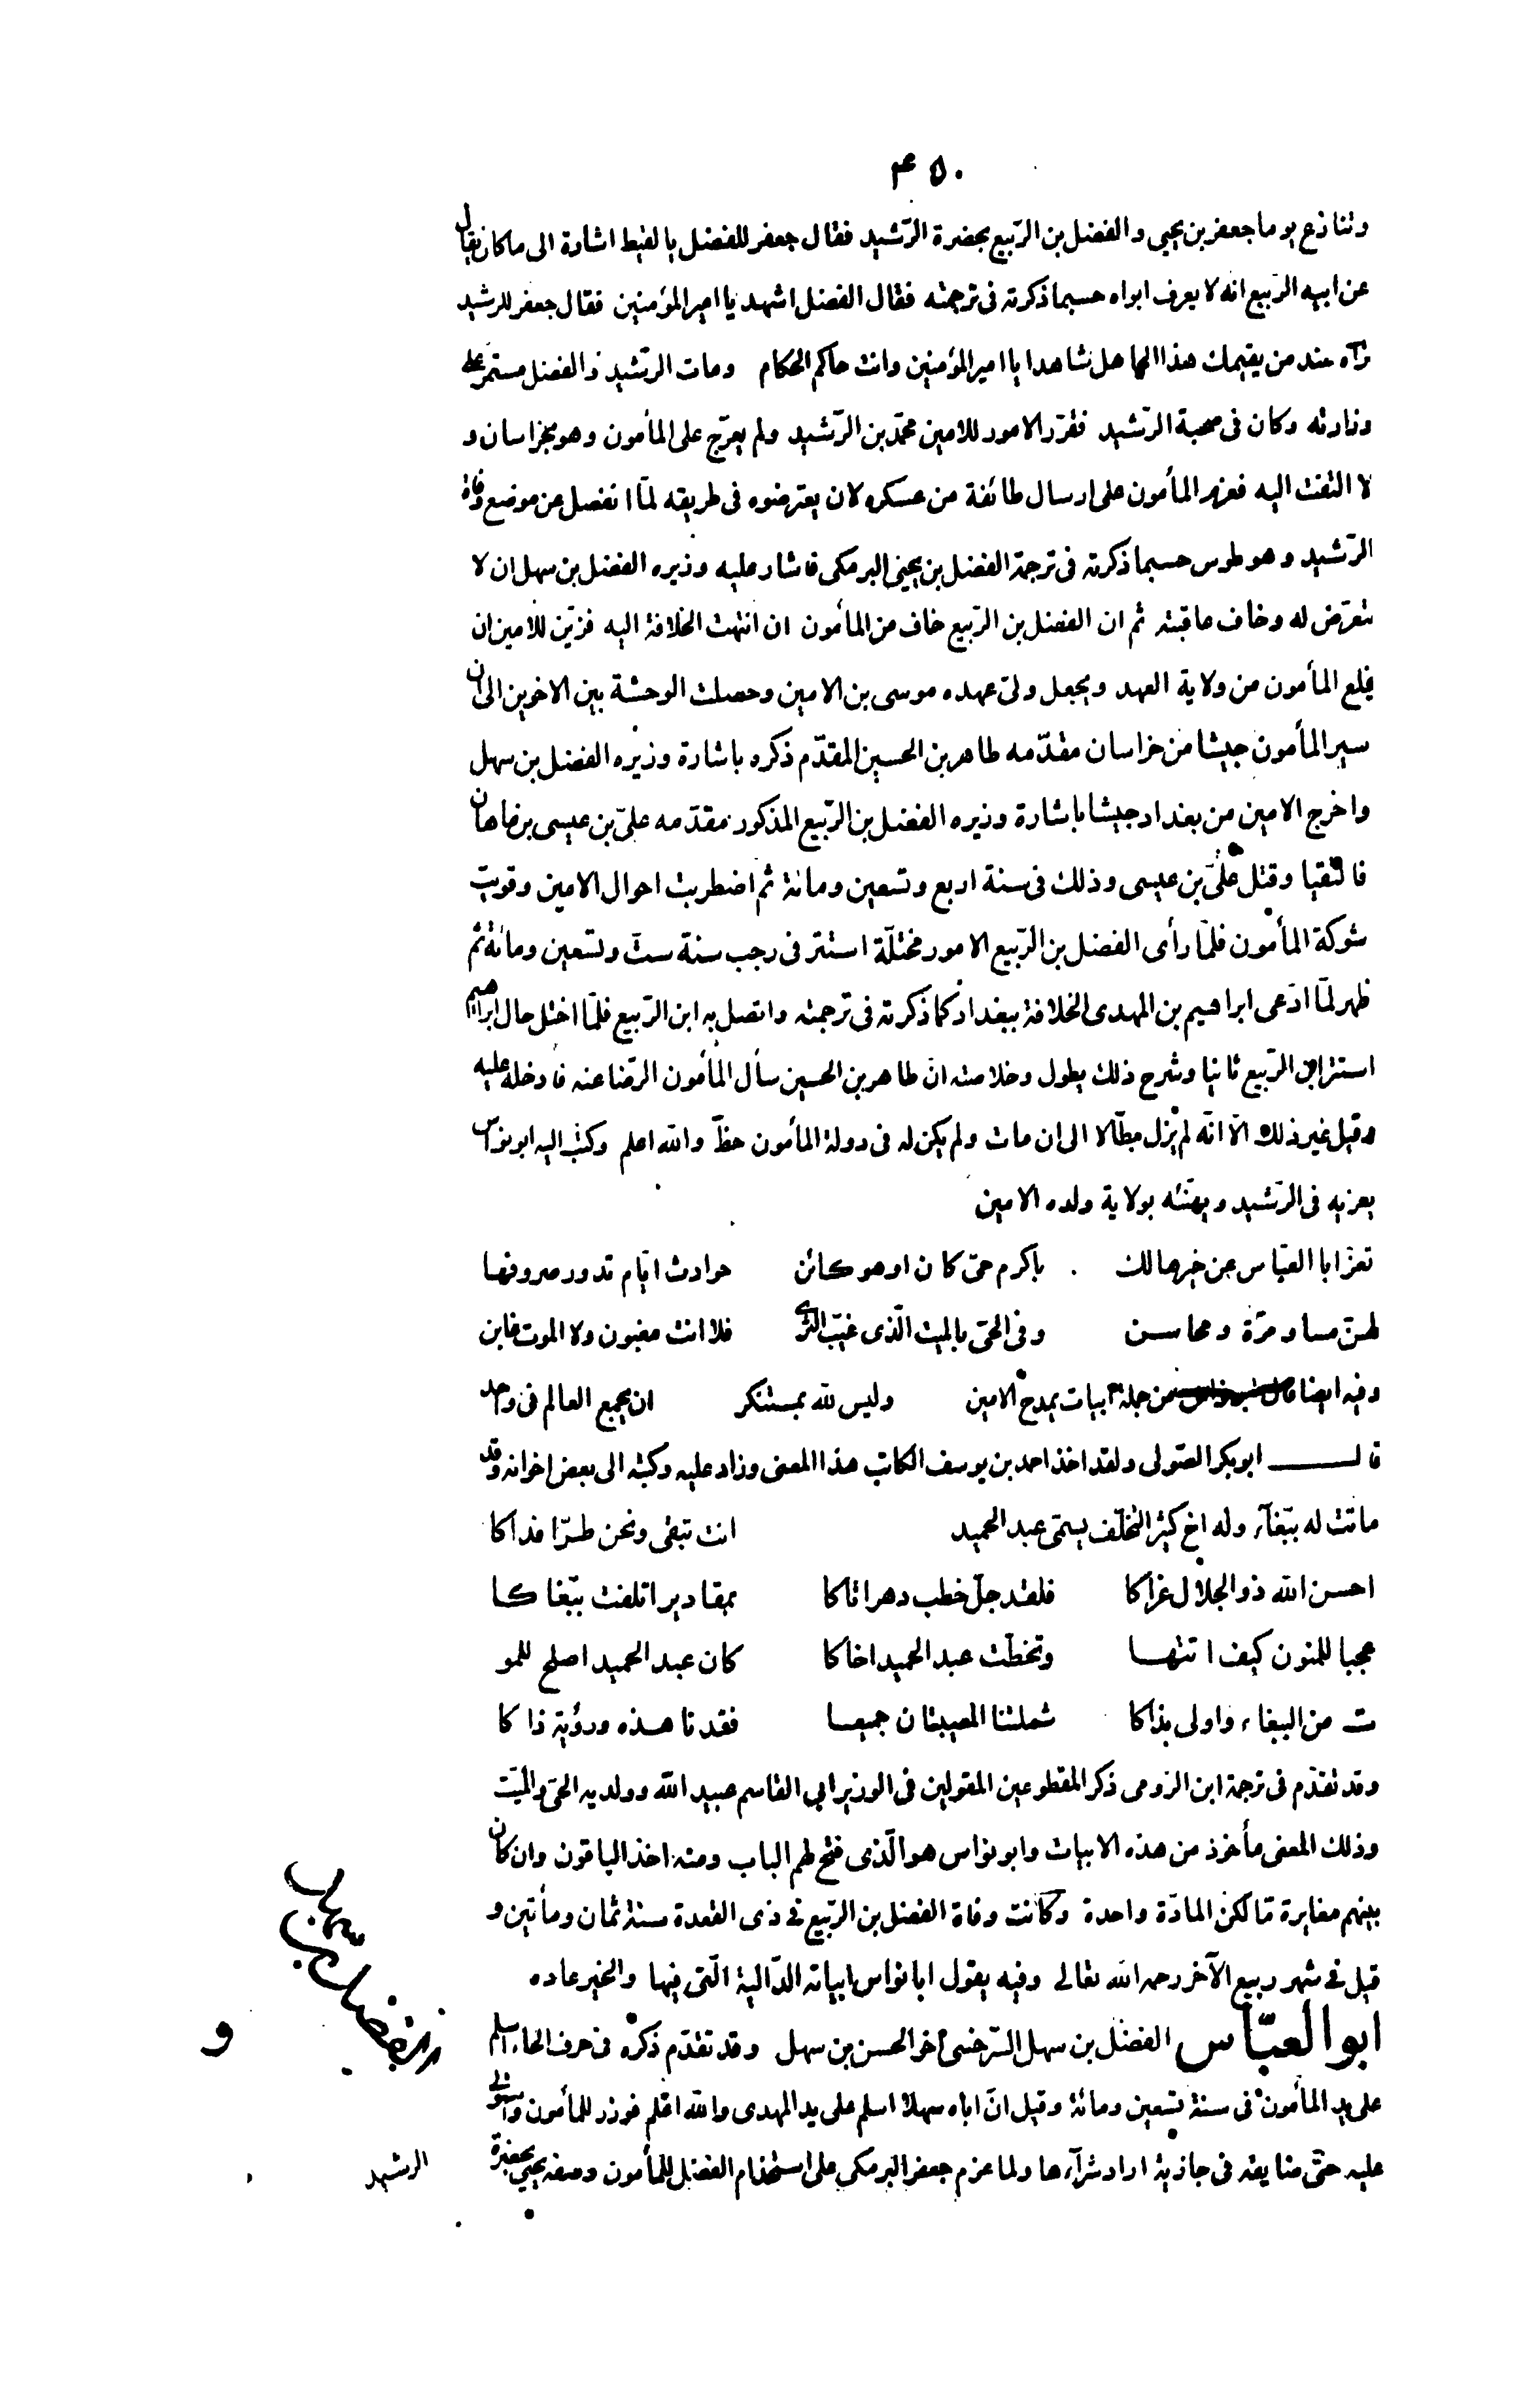 ٤٥٠
وتنازع يوما جعفر بن يحيى والفضل بن الرّبيع بحضرة الرّشيد فقال جعفر للفضل يا لقيط اشارة الى ما كان يقال
عن ابيه الرّبيع انه لا يعرف ابواه حسبما ذكرته فى ترجمته فقال الفضل اشهد يا امير المؤمنين فقال جعفر للرشيد
تراه عند من يقيمك هذا الجاهل شاهدا يا امير المؤمنين وانت حاكم الحكام ومات الرّشيد والفضل مستمرّ على
وزارته وكان فى صحبة الرّشيد فقرّر الامور للامين محمّد بن الرّشيد ولم يعرّج على المأمون وهو بخراسان و
لا التفت اليه فعزم المأمون على ارسال طائفة من عسكره لان يعترضوه فى طريقه لمّا انفصل عن موضع وفاة
الرّشيد وهو طوس حسبما ذكرته فى ترجمة الفضل بن يحيى البرمكى فاشار عليه وزيره الفضل بن سهل ان لا
يتعرّض له وخاف عاقبته ثم ان الفضل بن الرّبيع خاف من المأمون ان انتهت الخلافة اليه فزيّن للامين ان
يخلع المأمون من ولاية العهد ويجعل ولىّ عهده موسى بن الامين وحصلت الوحشة بين الاخوين الى ان
سير المأمون جيشا من خراسان مقدّمه طاهر بن الحسين المقدّم ذكره باشارة وزيره الفضل بن سهل
واخرج الامين من بغداد جيشا باشارة وزيره الفضل بن الرّبيع المذكور مقدّمه علىّ بن عيسى بن ماهان
فالتقيا وقتل علىّ بن عيسى وذلك فى سنة اربع وتسعين ومائة ثم اضطربت احوال الامين وقويت
شوكة المأمون فلمّا رأى الفضل بن الرّبيع الامور مختلّة استتر فى رجب سنة ستّ وتسعين ومائة ثم
ظهر لمّا ادّعى ابراهيم بن المهدى الخلافة ببغداد كما ذكرته فى ترجمته واتصل به ابن الرّبيع فلمّا اختل حال ابراهيم
استتر ابن الرّبيع ثانيا وشرح ذلك يطول وخلاصته انّ طاهر بن الحسين سأل المأمون الرّضا عنه فادخله عليه
وقيل غير ذلك الّا انّه لم يزل بطّالا الى ان مات ولم يكن له فى دولة المأمون حظّ والله اعلم وكتب اليه ابو نواس
يعزيه فى الرّشيد ويهنّئه بولاية ولده الامين
تعزّ ابا العبّاس عن خير هالك باكرم حىّ كان او هو كائن حوادث ايّام تدور صروفها
لهنّ مساو مرّة ومحاسن وفى الحىّ بالميت الّذى غيّب الثرى فلا انت مغبون ولا الموت غابن
وفيه ايضا من جملة ابيات يمدح الامين وليس لله بمستنكر ان يجمع العالم فى واحد
قال ابو بكر الصّولى ولقد اخذ احمد بن يوسف الكاتب هذا المعنى وزاد عليه وكتبه الى بعض اخوانه وقد
ماتت له ببّغآء وله اخ كثير التخلّف يسمّى عبد الحميد انت تبقى ونحن طرّا فداكا
احسن الله ذو الجلال عزاكا فلقد جلّ خطب دهر اتاكا بمقادير اتلفت ببّغاكا
عجبا للمنون كيف اتتها وتخطّت عبد الحميد اخاكا كان عبد الحميد اصلح للمو
ت من الببغاء واولى بذاكا شملتنا المصيبتان جميعا فقدنا هذه ورؤية ذاكا
وقد تقدّم فى ترجمة ابن الرّومى ذكر المقطوعين المقولين فى الوزير ابى القاسم عبيد الله وولديه الحىّ والميّت
وذلك المعنى مأخوذ من هذه الابيات وابو نواس هو الّذى فتح لهم الباب ومنه اخذ الباقون وان كان
بينهم مغايرة تّا لكنّ المادّة واحدة وكانت وفاة الفضل بن الرّبيع فى ذى القعدة سنة ثمان ومأتين و
قيل فى شهر ربيع الآخر رحمه الله تعالى وفيه يقول ابا نواس ابياته الدّالية الّتى فيها والخير عاده
ابو العبّاس الفضل بن سهل السّرخسى اخو الحسن بن سهل وقد تقدّم ذكره فى حرف الحاء اسلم
على يد المأمون فى سنة تسعين ومائة وقيل انّ اباه سهلا اسلم على يد المهدى والله اعلم فوزر للمأمون واستولى
عليه حتّى ضايقه فى جارية اراد شرآءها ولما عزم جعفر البرمكى على استخدام الفضل للمأمون وصفه يحيى بحضرة
الرشيد
الفضل بن سهل
و